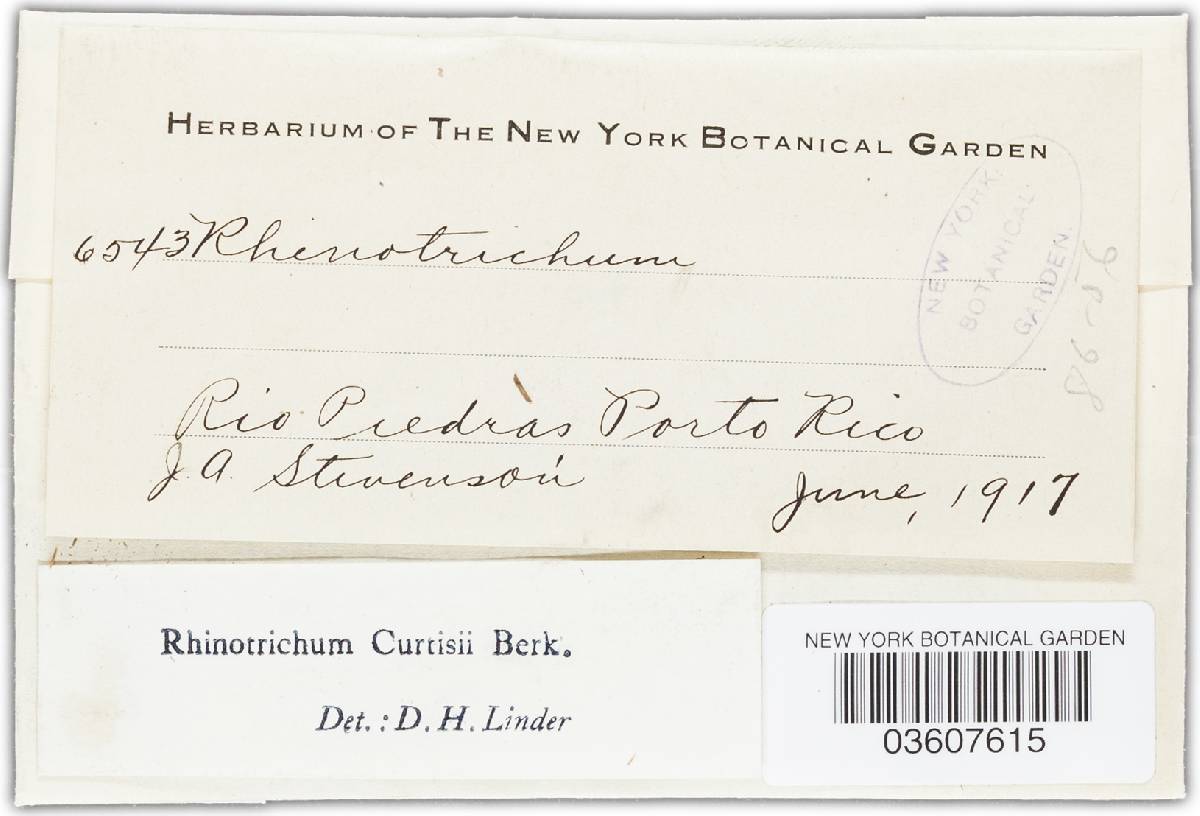 HERBARIUM OF THE NEW YORK BOTANICAL GARDEN
6543 Rhinotrichum
NEW YORK
BOTANICAL
GARDEN.
Rio Piedras Porto Rico
J. A. Stevenson June, 1917
Rhinotrichum Curtisii Berk.
Det.: D. H. Linder
NEW YORK BOTANICAL GARDEN
03607615